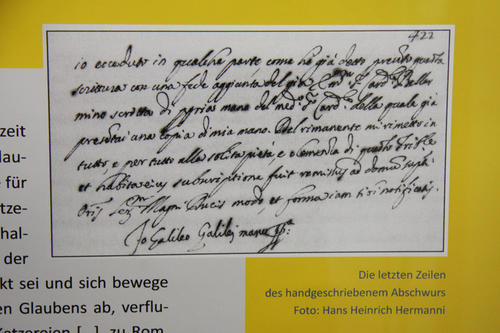 422
io ecceduto in qualche parte come hò già detto presento questa
scrittura con una fede aggiunta del già Em.mo S.r Card.l Bellar
mino scritta di ppria mano del med.o S.r Card.le della quale già
presentai una copia di mia mano. Del rimanente mi rimetto in
tutto, e per tutto alla solita pietà, e clemenza di questo Trib.le
et habita eius subscriptione fuit remissus ad domum supti
Oris Ser.mi Magni Ducis modo, et forma iam sibi notificatis.
Io Galileo Galilei manu pp.a
zeit
lau-
e für
tze-
hal-
der
kt sei und sich bewege
en Glaubens ab, verflu-
Ketzereien [...], zu Rom
Die letzten Zeilen
des handgeschriebenem Abschwurs
Foto: Hans Heinrich Hermanni